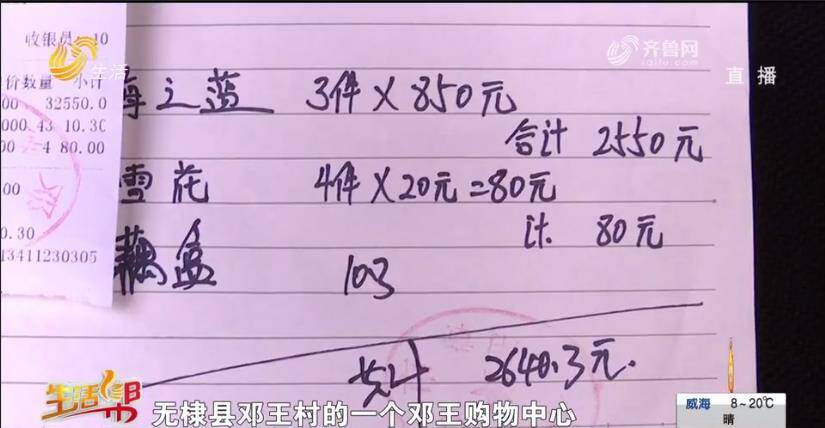 收银员 10
生活
齐鲁网
直播
价数量 小计
00 32550.0
000.43 10.30
00 4 80.00
00
0.30
13411230305
海之蓝 3件×850元
合计 2550元
雪花 4件×20元=80元
计 80元
藕盒 103
共计 2640.3元.
生活帮
无棣县邓王村的一个邓王购物中心
威海 8~20℃
晴